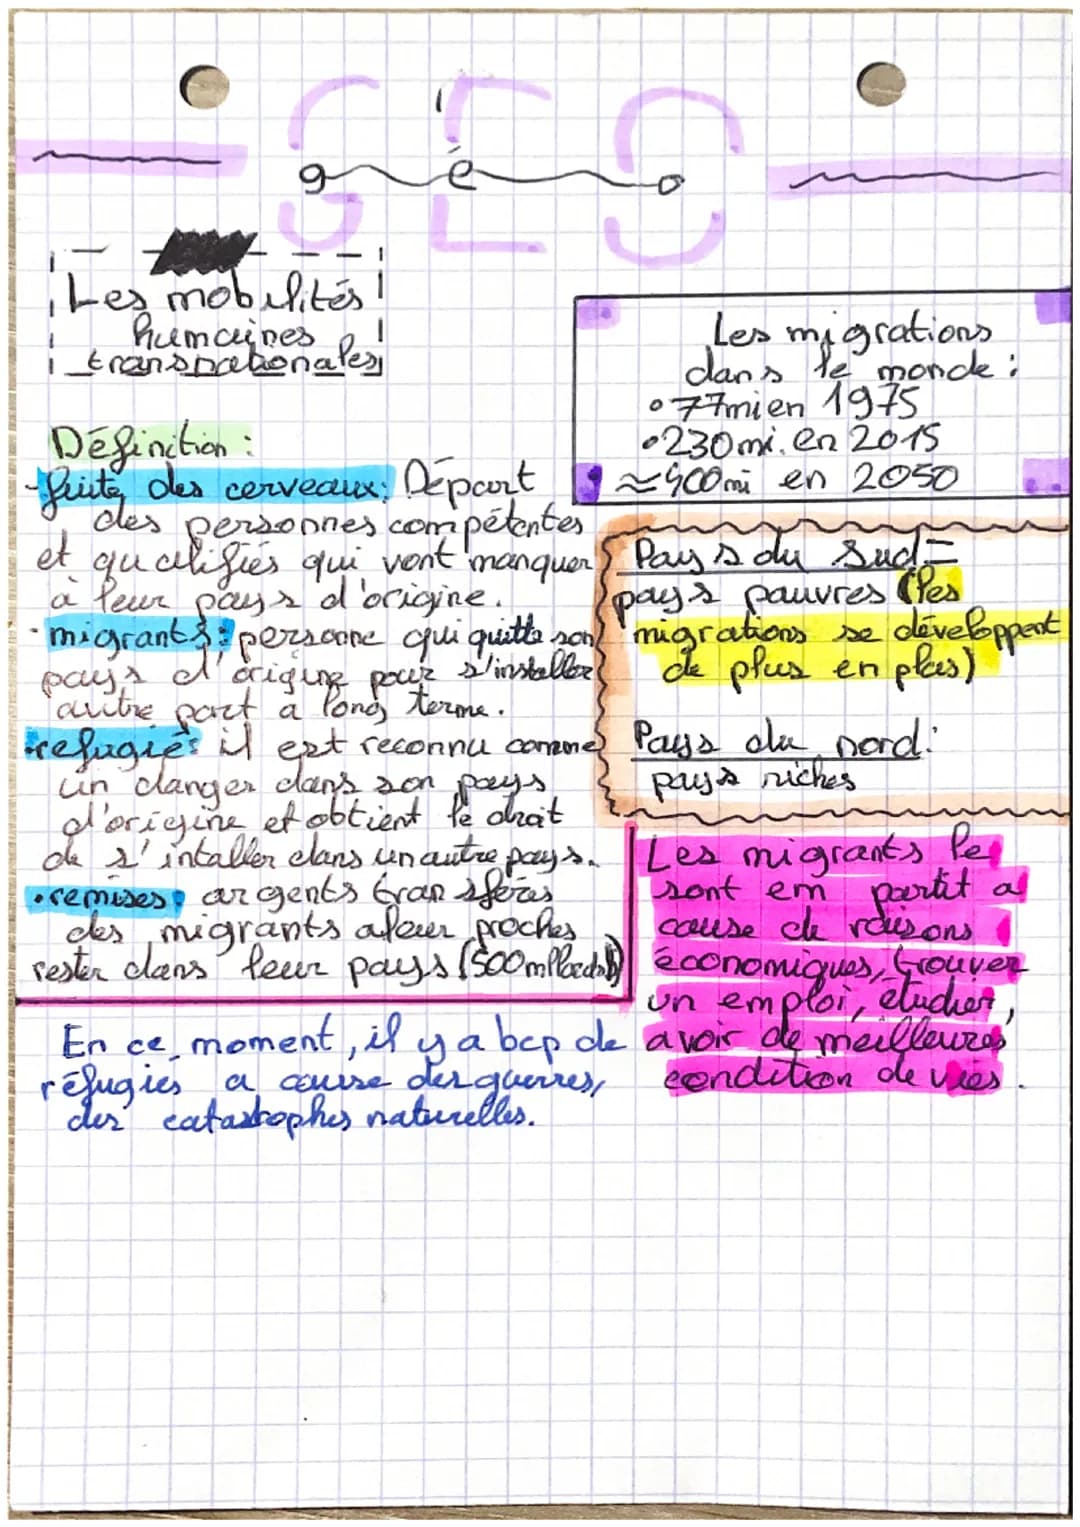 GEO
géo
Les mobilités
humaines
transnationales
Les migrations
dans le monde :
•77mi en 1975
•230mi. en 2015
≈400mi en 2050
Définition :
-fuite des cerveaux: Départ
des personnes compétentes
et qualifiés qui vont manquer
à leur pays d'origine.
• migrants : personne qui quitte son
pays d'origine pour s'installer
autre part a long terme.
•refugié: il est reconnu comme
un danger dans son pays
d'origine et obtient le droit
de s'intaller dans un autre pays.
•remises: argents transférés
des migrants a leur proches
rester dans leur pays (500
Pays du Sud=
pays pauvres (les
migrations se développent
de plus en plus)
Pays du nord:
pays riches
Les migrants le
sont em partit a
cause de raisons
économiques, trouver
un emploi, étudier,
avoir de meilleures
condition de vies.
En ce moment, il y a bcp de
réfugiés a cause des guerres,
des catastophes naturelles.